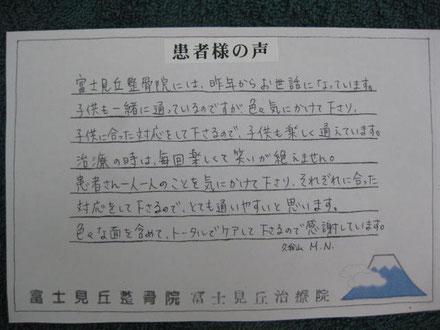 患者様の声
富士見丘整骨院には、昨年からお世話になっています。
子供も一緒に通っているのですが、色々気にかけて下さり、
子供に合った対応をして下さるので、子供も楽しく通えています。
治療の時は、毎回楽しくて笑いが絶えません。
患者さん一人一人のことを気にかけて下さり、それぞれに合った
対応をして下さるので、とても通いやすいと思います。
色々な面を含めて、トータルでケアして下さるので感謝しています。
M.N.
富士見丘整骨院 富士見丘治療院